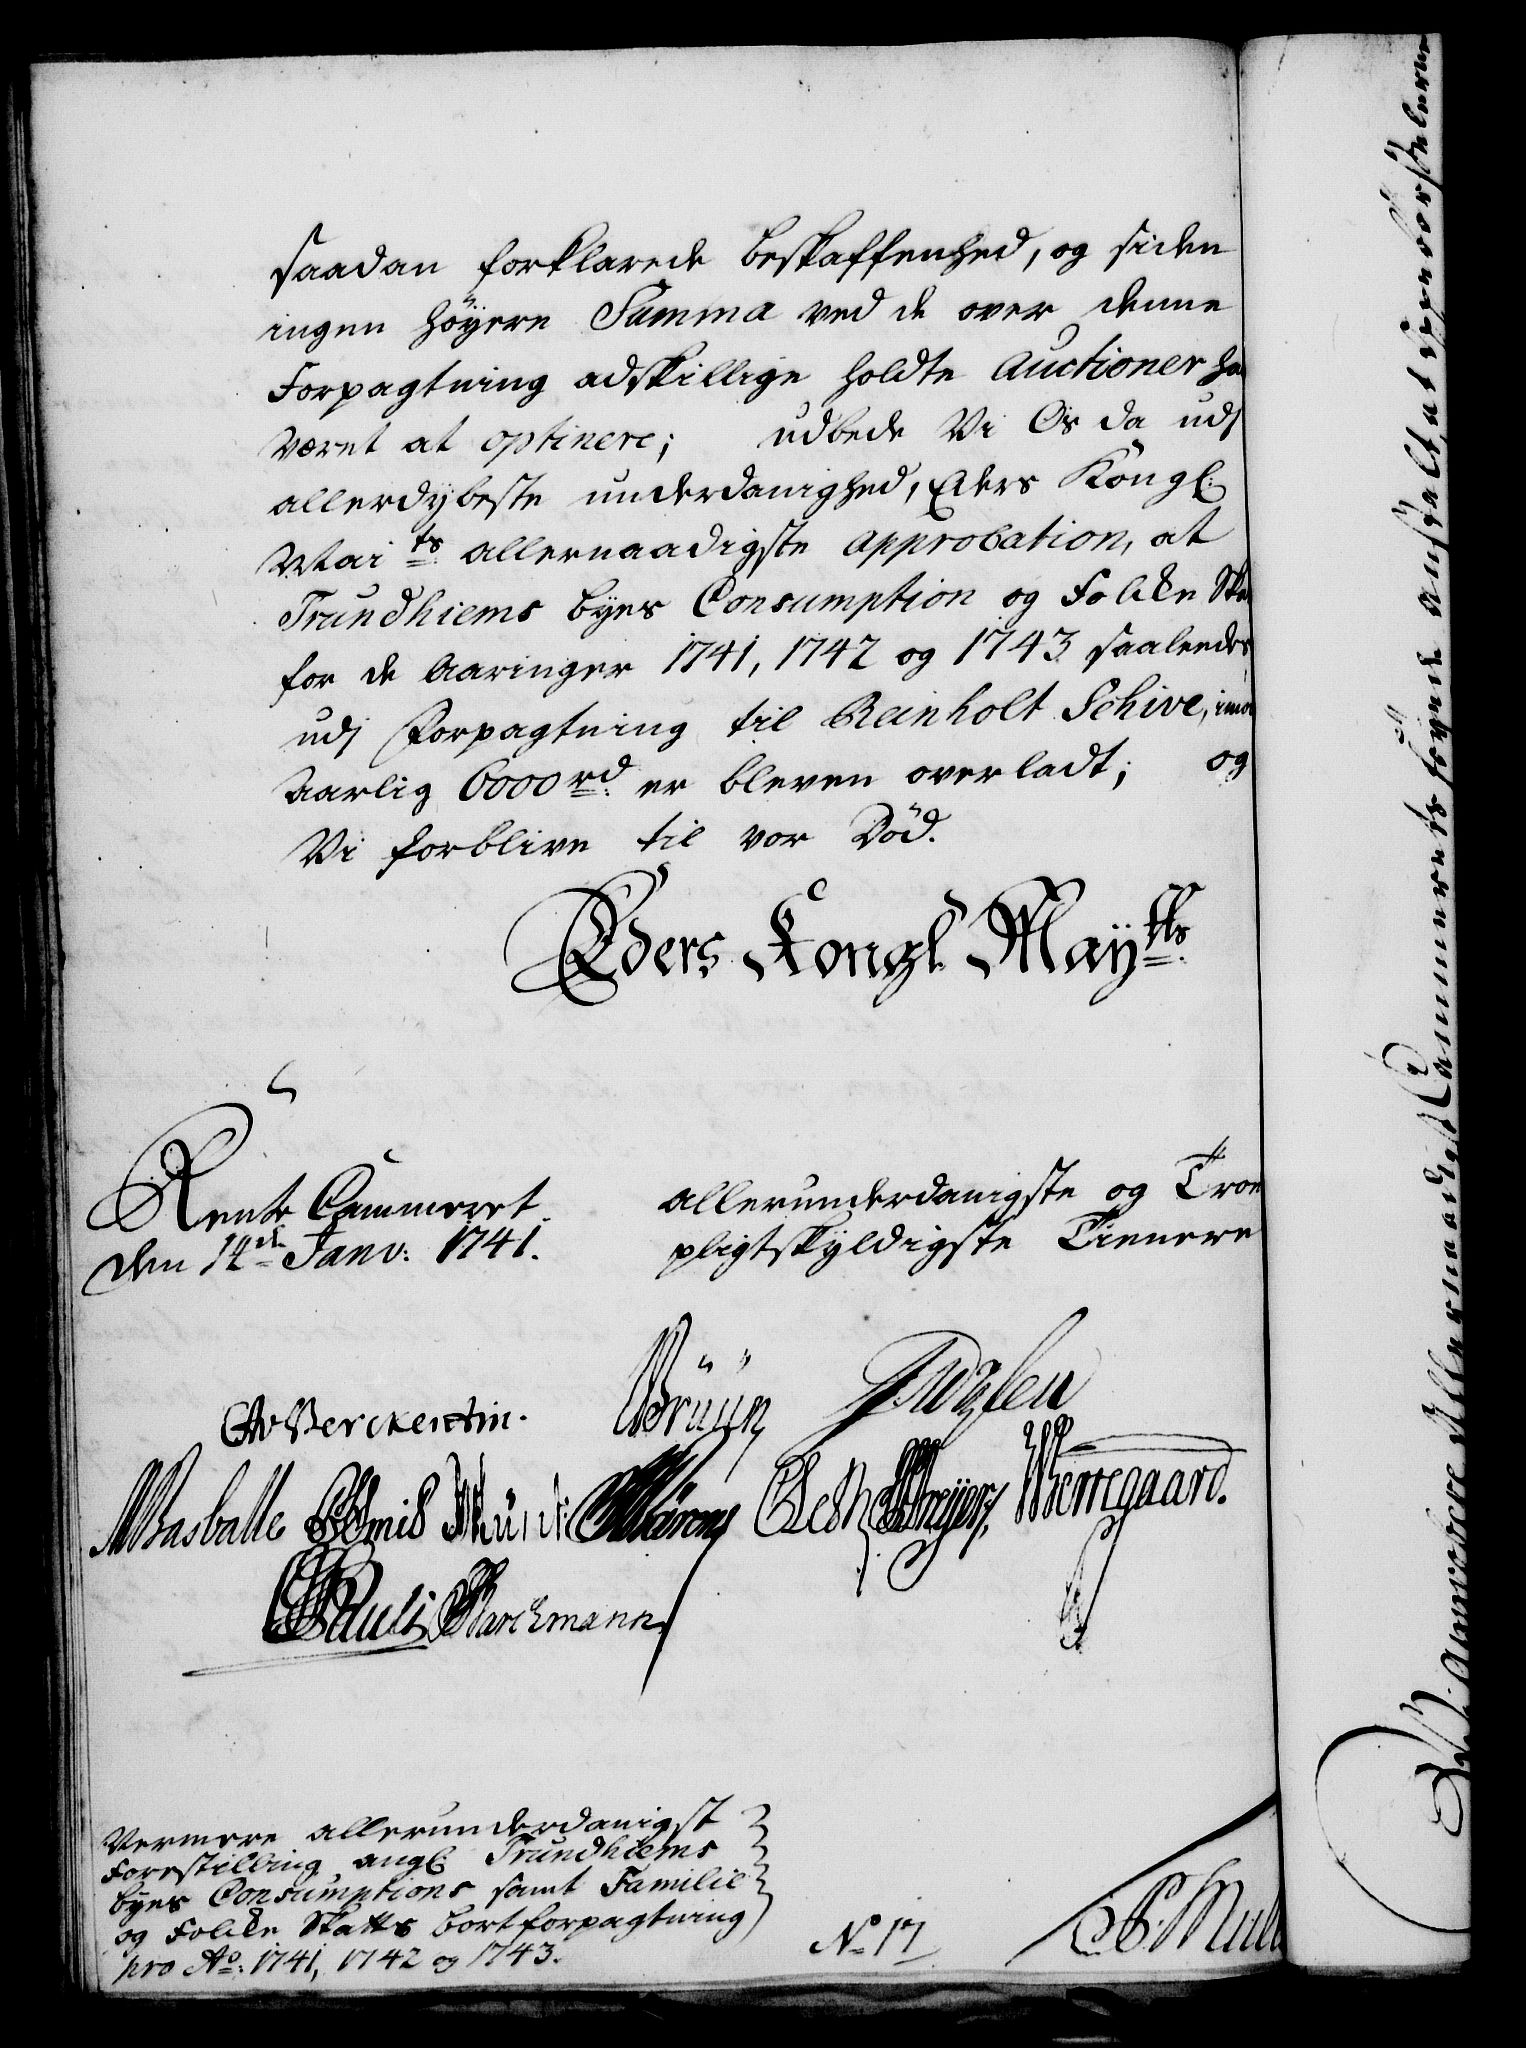 saadan forklarede beskaffenhed, og siden
ingen høyere Summa ved de over denne
Forpagtning adskillige holdte Auctioner ha
været at optinere; udbede Vi Os da udj
allerdybeste underdanighed, Eders Kongl:
Mai<sup>ts</sup> allernaadigste approbation, at
Trundhiems byes Consumption og Folcke Ska
for de Aaringer 1741, 1742 og 1743 saaleedes
udj Forpagtning til Reinholt Schive, imod
Aarlig 6000 rd er bleven overladt; og
Vi forblive til vor Död.
Eders Kongl. Maÿtts
Rente Cammeret
den 14de Janv: 1741.
allerunderdanigste og Troe
pligtskyldigste Tienere
CAvBerckentin. Brüün
Basballe
Bierregaard.
Pauli Barchmann
Vermere allerunderdanigst
Forestilling angl: Trundhiems
byes Consumptions samt Familie
og Folcke Skatts bortforpagtning
pro Ao: 1741, 1742 og 1743.
No 17